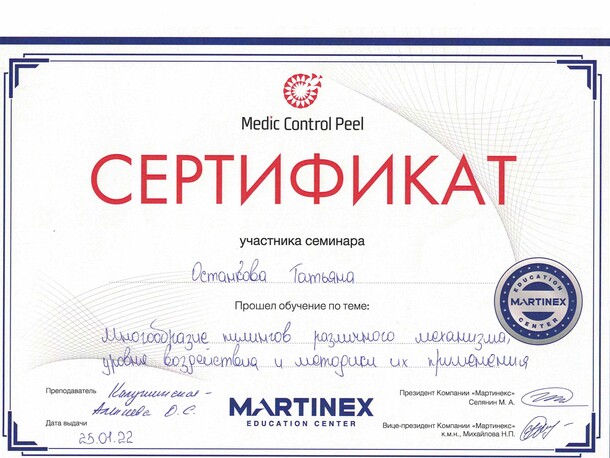 Medic Control Peel
СЕРТИФИКАТ
участника семинара
Останкова Татьяна
Прошел обучение по теме:
Многообразие пилингов различного механизма,
уровня воздействия и методики их применения
EDUCATION
MARTINEX
CENTER
Преподаватель
О.С.
Дата выдачи
25.01.22
MARTINEX
EDUCATION CENTER
Президент Компании «Мартинекс»
Селянин М. А.
Вице-президент Компании «Мартинекс»
к.м.н., Михайлова Н.П.